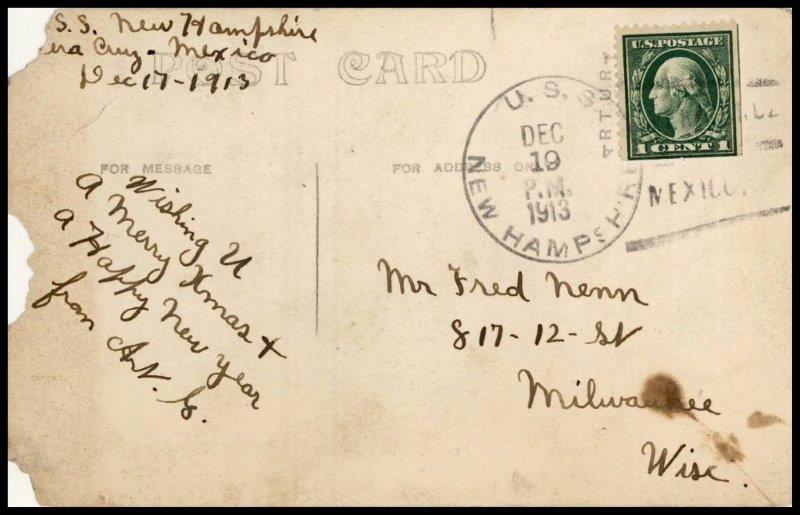 .S.S. New Hampshire
era Cruz - Mexico
Dec 17 - 1913
POST CARD
U.S. POSTAGE
1 CENT 1
U.S.S.
NEW HAMPSHIRE
DEC
19
P.M.
1913
MEXICO.
FOR MESSAGE
FOR ADDRESS ON
Wishing U
A Merry Xmas +
a Happy New year
from Art. G.
Mr Fred Nenn
817 - 12 - St
Milwaukee
Wisc.